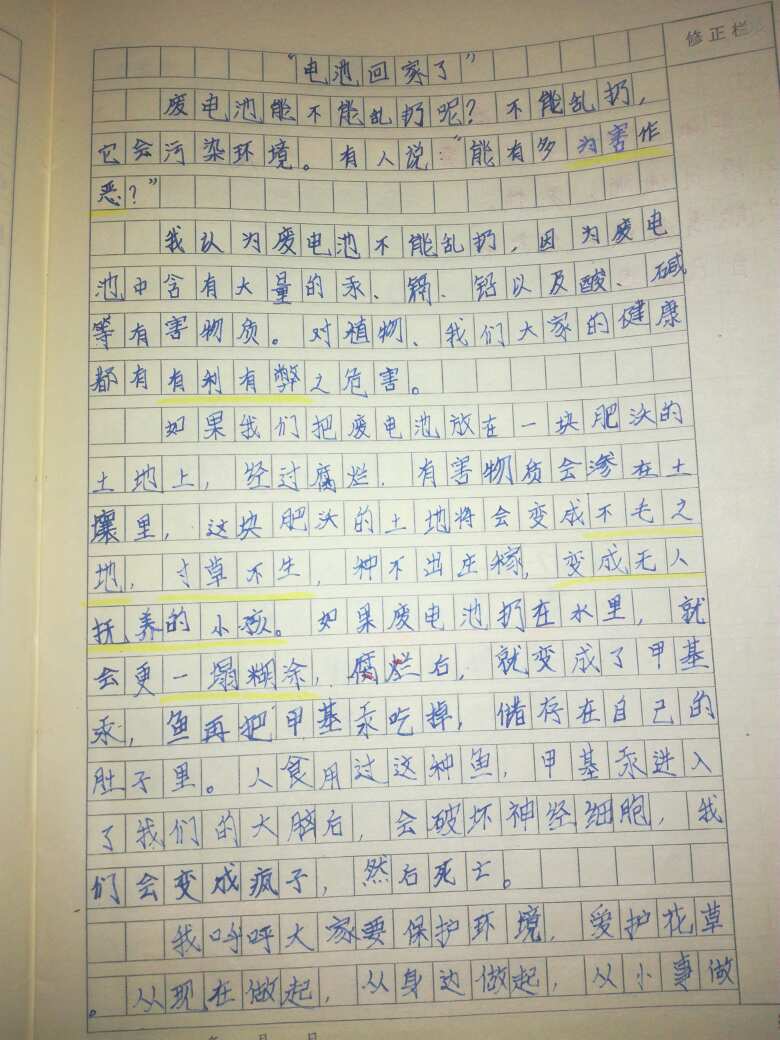 修正栏
"电池回家了"
废电池能不能乱扔呢？不能乱扔，
它会污染环境。有人说："能有多为害作
恶？"
我认为废电池不能乱扔，因为废电
池中含有大量的汞、镉、铅以及酸、碱
等有害物质。对植物、我们大家的健康
都有有利有弊之危害。
如果我们把废电池放在一块肥沃的
土地上，经过腐烂，有害物质会渗在土
壤里，这块肥沃的土地将会变成不毛之
地，寸草不生，种不出庄稼，变成无人
抚养的小孩。如果废电池扔在水里，就
会更一塌糊涂，腐烂后，就变成了甲基
汞，鱼再把甲基汞吃掉，储存在自己的
肚子里。人食用过这种鱼，甲基汞进入
了我们的大脑后，会破坏神经细胞，我
们会变成疯子，然后死亡。
我呼呼大家要保护环境，爱护花草
。从现在做起，从身边做起，从小事做